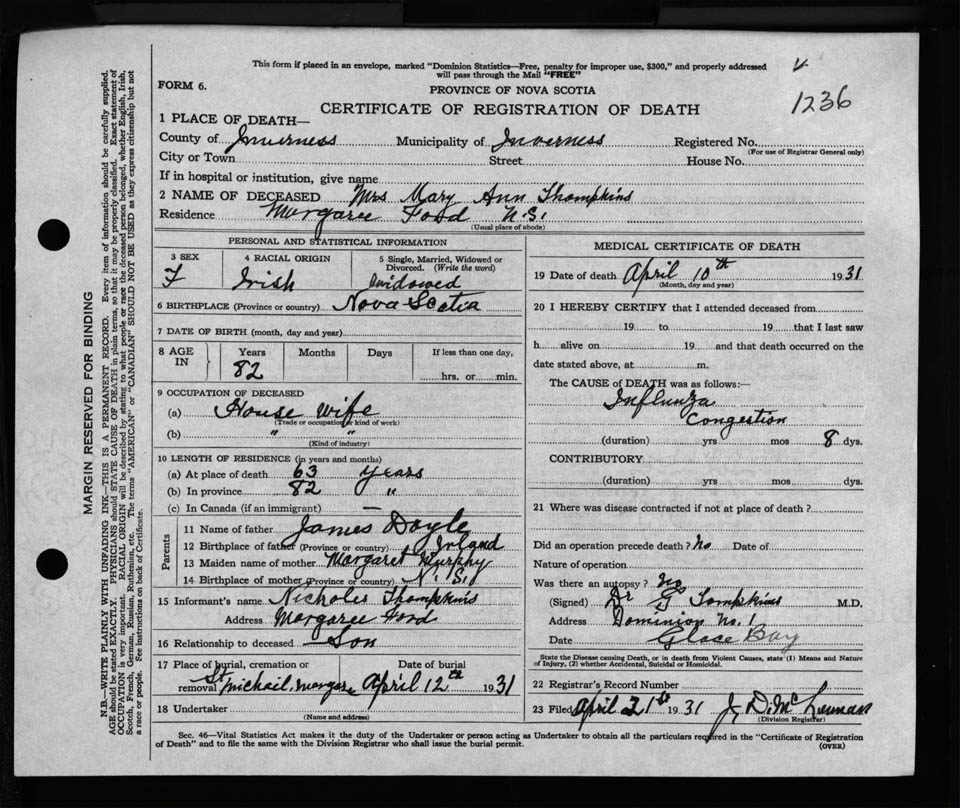 This form if placed in an envelope, marked "Dominion Statistics—Free, penalty for improper use, $300," and properly addressed
will pass through the Mail "FREE"
FORM 6.
PROVINCE OF NOVA SCOTIA
1236
CERTIFICATE OF REGISTRATION OF DEATH
1 PLACE OF DEATH—
County of Inverness Municipality of Inverness Registered No.
(For use of Registrar General only)
City or Town Street House No.
If in hospital or institution, give name
2 NAME OF DECEASED Mrs Mary Ann Thompkins
Residence Margaree Ford N.S.
(Usual place of abode)
PERSONAL AND STATISTICAL INFORMATION
3 SEX 4 RACIAL ORIGIN 5 Single, Married, Widowed or Divorced. (Write the word)
F Irish Widowed
6 BIRTHPLACE (Province or country) Nova Scotia
7 DATE OF BIRTH (month, day and year)
8 AGE IN Years Months Days If less than one day,
82 hrs. or min.
9 OCCUPATION OF DECEASED
(a) House wife
(Trade or occupation or kind of work)
(b) " "
(Kind of industry)
10 LENGTH OF RESIDENCE (in years and months)
(a) At place of death 63 Years
(b) In province 82 "
(c) In Canada (if an immigrant) —
Parents
11 Name of father James Doyle
12 Birthplace of father (Province or country) Irland
13 Maiden name of mother Margaret Murphy
14 Birthplace of mother (Province or country) N.S.
15 Informant's name Nicholes Thompkins
Address Margaree Ford
16 Relationship to deceased Son
17 Place of burial, cremation or removal Date of burial
St Michail, Margare April 12th 1931
18 Undertaker
(Name and address)
MEDICAL CERTIFICATE OF DEATH
19 Date of death April 10th 1931
(Month, day and year)
20 I HEREBY CERTIFY that I attended deceased from
19 to 19 that I last saw
h alive on 19 and that death occurred on the
date stated above, at m.
The CAUSE of DEATH was as follows:—
Influnza
Congestion
(duration) yrs mos 8 dys.
CONTRIBUTORY
(duration) yrs. mos. dys.
21 Where was disease contracted if not at place of death?
Did an operation precede death? No Date of
Nature of operation
Was there an autopsy? No
(Signed) Dr Tompkins M.D.
Address Dominion No. 1
Date Glace Bay
State the Disease causing Death, or in death from Violent Causes, state (1) Means and Nature
of Injury, (2) whether Accidental, Suicidal or Homicidal.
22 Registrar's Record Number
23 Filed April 21st 1931 J. D. McLennan
(Division Registrar)
Sec. 46—Vital Statistics Act makes it the duty of the Undertaker or person acting as Undertaker to obtain all the particulars required in the "Certificate of Registration
of Death" and to file the same with the Division Registrar who shall issue the burial permit.
(OVER)
MARGIN RESERVED FOR BINDING
N.B.—WRITE PLAINLY WITH UNFADING INK—THIS IS A PERMANENT RECORD. Every item of information should be carefully supplied.
AGE should be stated EXACTLY. PHYSICIANS should STATE CAUSE OF DEATH in plain terms, so that it may be properly classified. Exact statement of
OCCUPATION is very important. RACIAL ORIGIN will be described by stating to what people or race the deceased person belonged, whether English, Irish,
Scotch, French, German, Russian, Ruthenian, etc. The terms "AMERICAN" or "CANADIAN" SHOULD NOT BE USED as they express citizenship but not
a race or people. See instructions on back of Certificate.